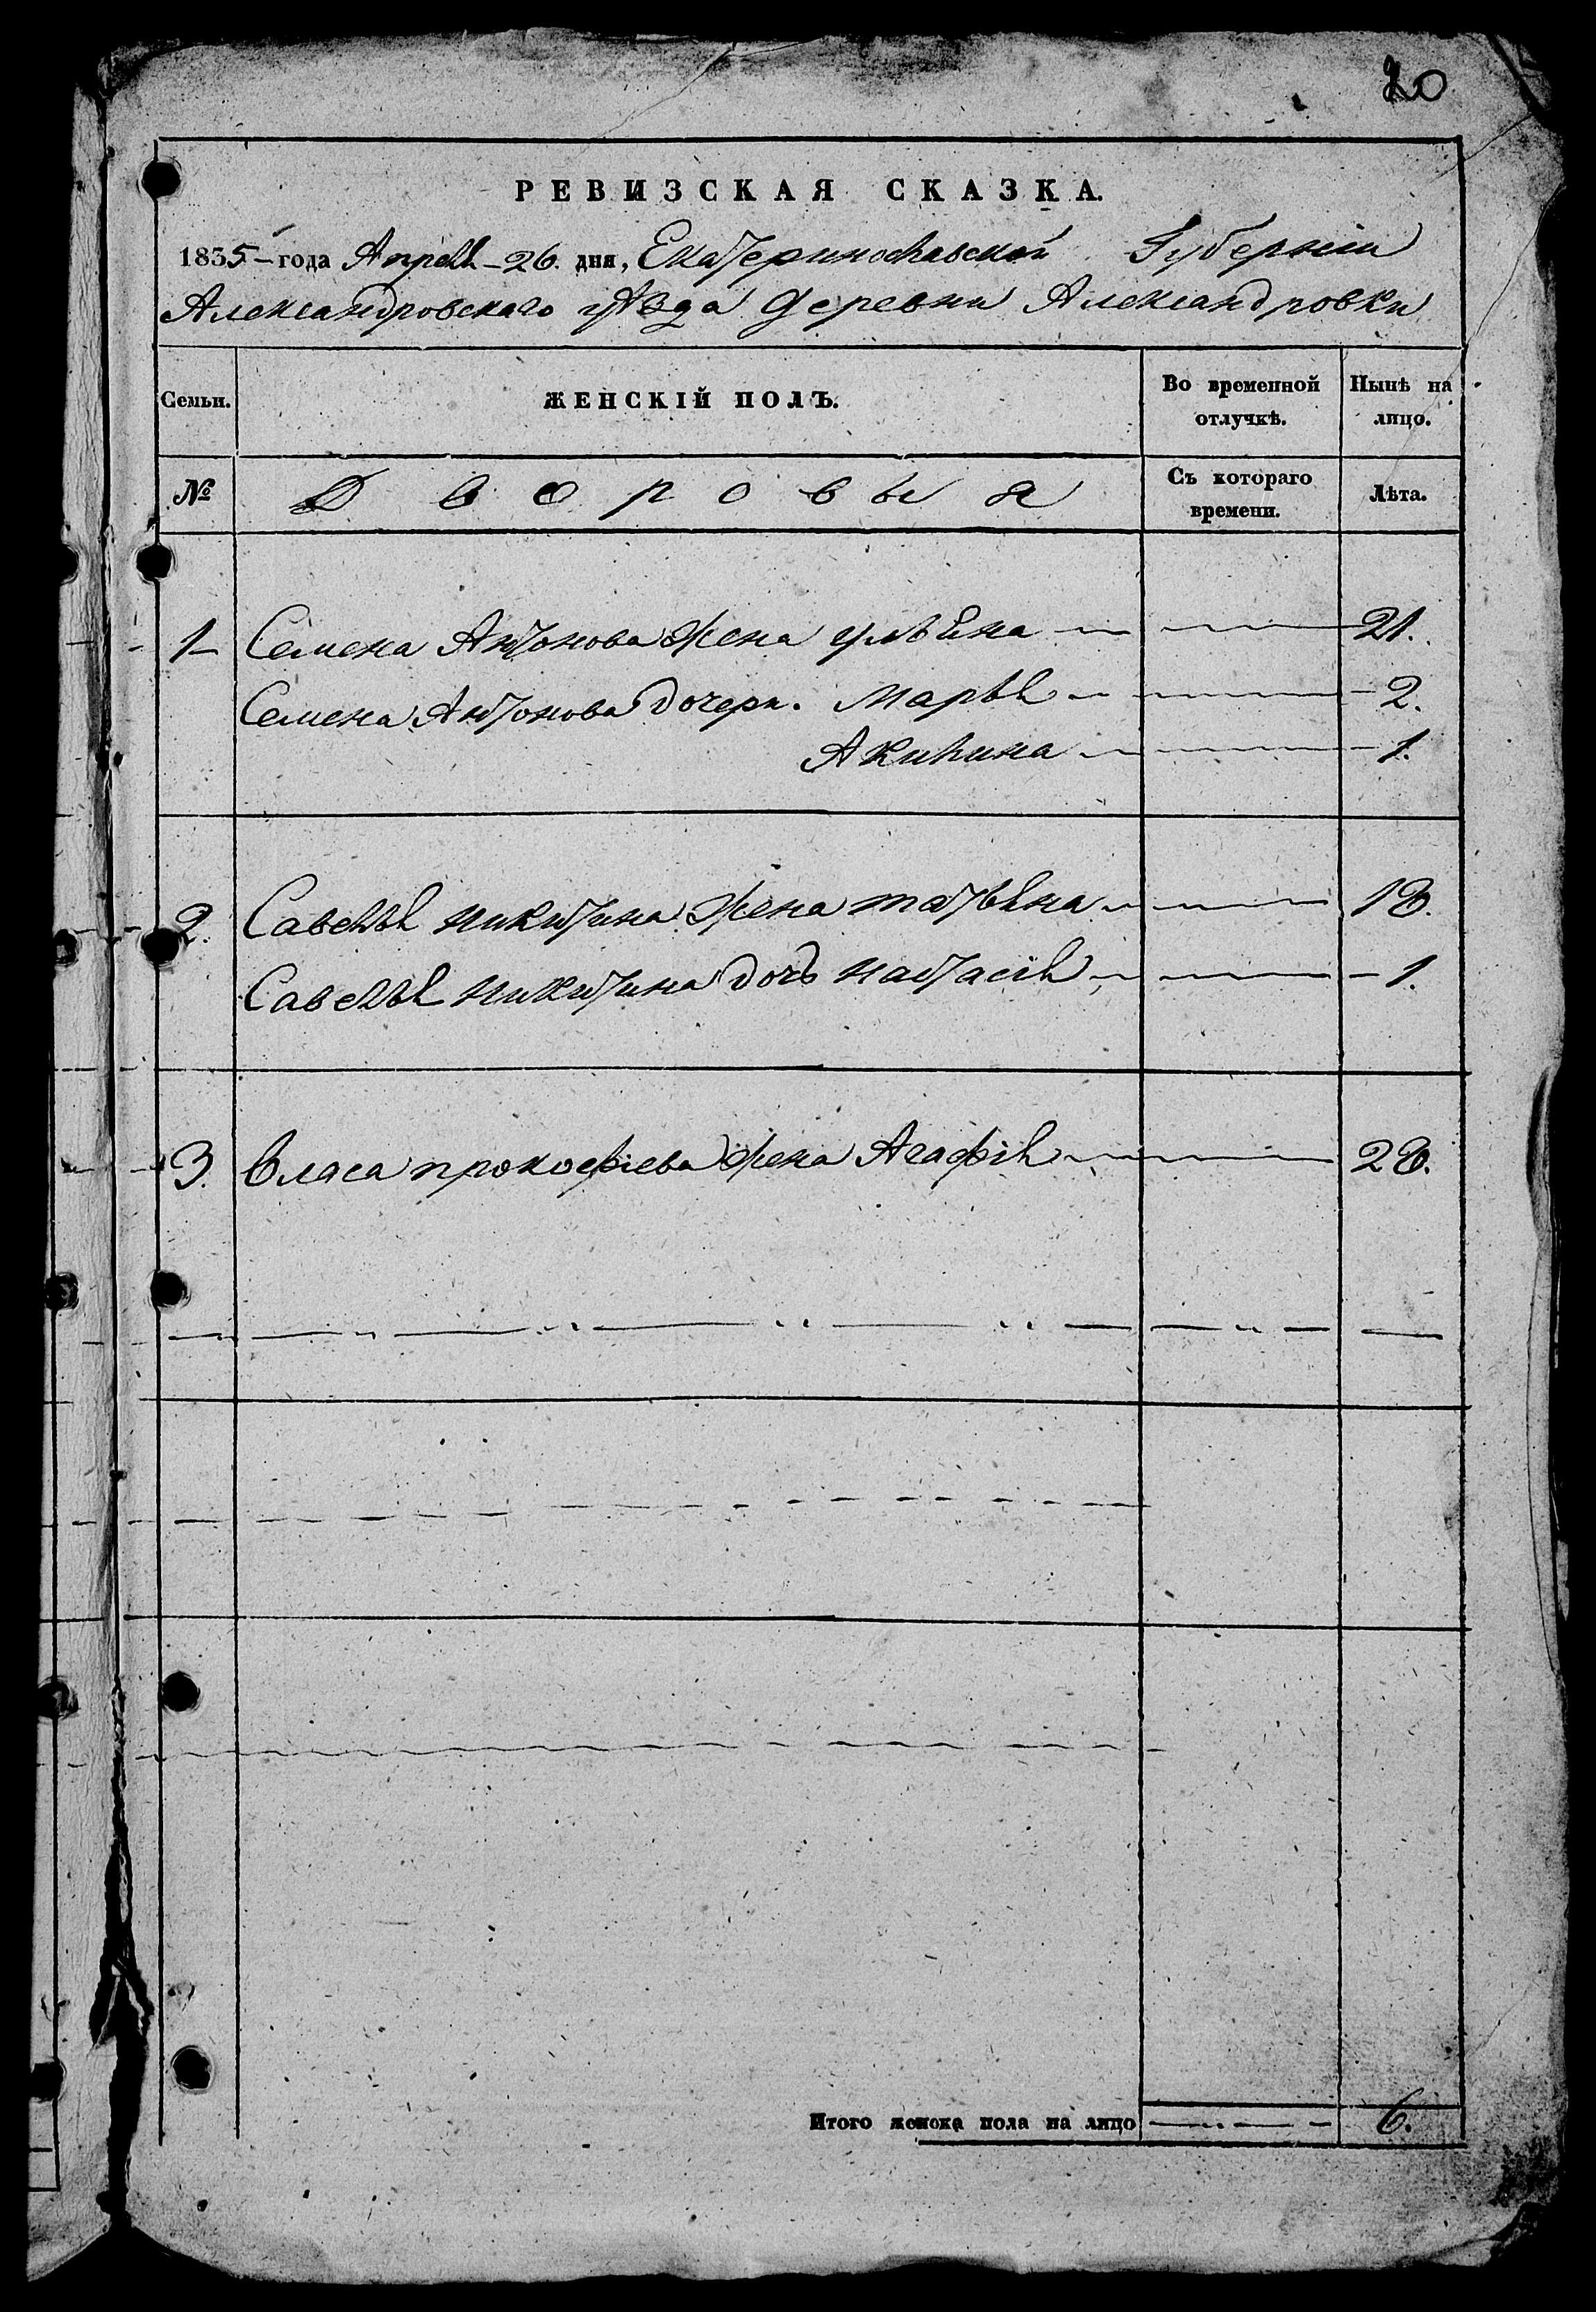 20
РЕВИЗСКАЯ СКАЗКА.
1835 года Апреля 26. дня, Екатеринославской Губерніи
Александровского уѣзда деревни Александровки
Семьи. ЖЕНСКІЙ ПОЛЪ. Во временной отлучкѣ. Нынѣ на лицо.
№ Дворовыя Съ котораго времени. Лѣта.
1 Семена Антонова жена 21.
Семена Антонова дочери. Марья 2.
Акилина 1.
2. Савелья никитина жена татьяна 18.
Савелья никитина дочь настасія 1.
3. Власа прокофіева жена Агафія 28.
Итого женска пола на лицо 6.